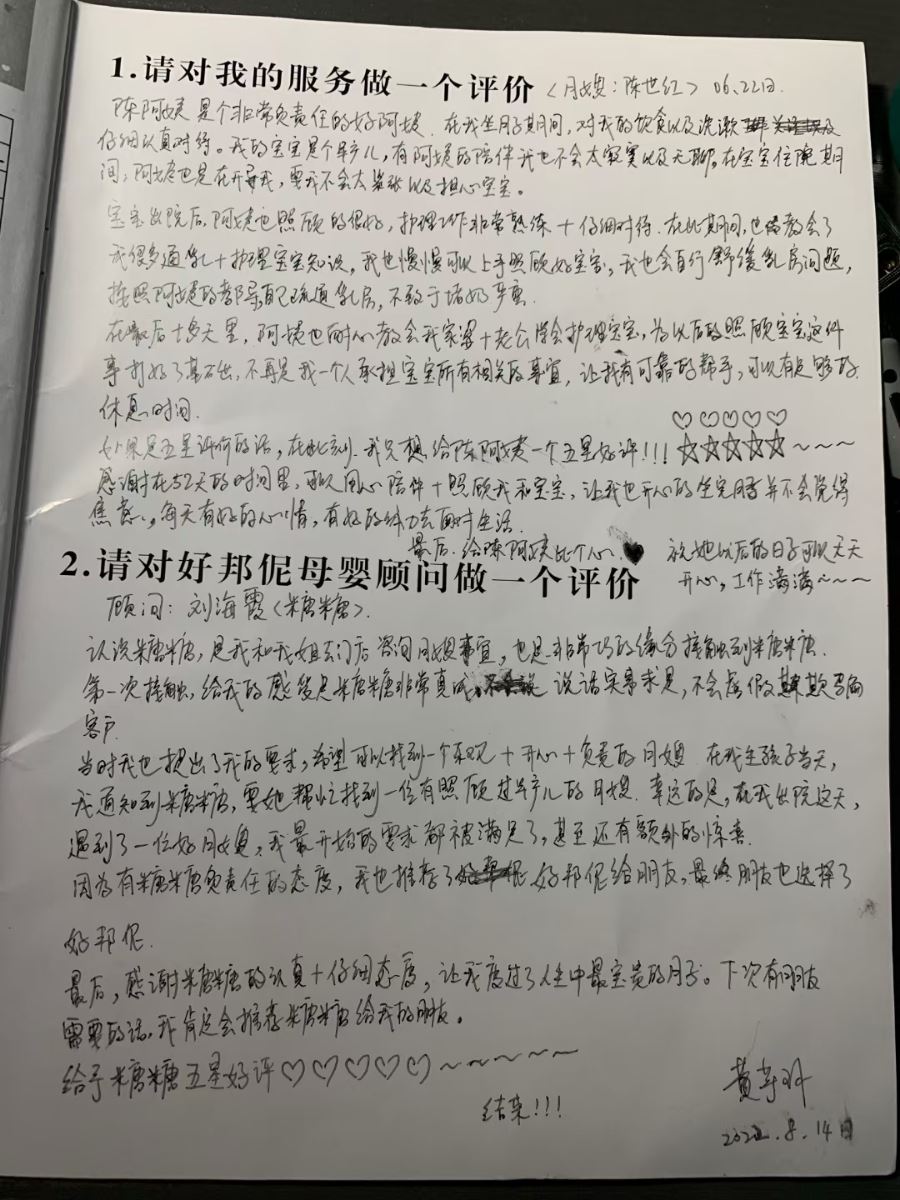 1.请对我的服务做一个评价（月嫂：陈世红）06.22日.
陈阿姨是个非常负责任的好阿姨.在我坐月子期间,对我的饮食以及洗漱
仔细认真对待。我的宝宝是个早产儿,有阿姨的陪伴我也不会太寂寞以及无聊。在宝宝住院期
间,阿姨也是在开导我,要我不会太紧张以及担心宝宝。
宝宝出院后,阿姨也照顾的很好,护理工作非常熟练+仔细对待.在此期间,也教会了
我很多通乳+护理宝宝知识,我也慢慢可以上手照顾好宝宝,我也会自行舒缓乳房问题,
按照阿姨的教导,自己疏通乳房,不致于堵奶严重.
在最后十多天里,阿姨也耐心教会我家婆+老公学会护理宝宝,为以后的照顾宝宝这件
事打好了基础,不再是我一个人承担宝宝所有相关的事宜,让我有可靠的帮手,可以有足够的
休息时间.
如果是五星评价的话,在此刻.我只想给陈阿姨一个五星好评!!!☆☆☆☆☆~~~
♡♡♡♡♡
感谢在52天的时间里,可以用心陪伴+照顾我和宝宝,让我也开心的坐完月子并不会觉得
焦虑.,每天有好的心情,有好的体力去面对生活.
最后.给陈阿姨比个心.♥ 祝她以后的日子可以天天
开心,工作满满~~~~
2.请对好邦伲母婴顾问做一个评价
顾问:刘海霞(糖糖).
认识糖糖,是我和我姐去门店咨询月嫂事宜,也是非常巧的缘分接触到糖糖.
第一次接触,给我的感觉是糖糖非常真诚.说话实事求是,不会虚假欺骗
客户.
当时我也提出了我的要求,希望可以找到一个乐观+开心+负责的月嫂.在我生孩子当天,
我通知到糖糖,要她帮忙找到一位有照顾过早产儿的月嫂.幸运的是,在我出院这天,
遇到了一位好月嫂,我最开始的需求都被满足了,甚至还有额外的惊喜.
因为有糖糖负责任的态度,我也推荐了好邦伲给朋友,最终朋友也选择了
好邦伲.
最后,感谢糖糖的认真+仔细态度,让我度过了人生中最宝贵的月子。下次有朋友
需要的话,我肯定会推荐糖糖给我的朋友。
给予糖糖五星好评♡♡♡♡♡~~~~~
结束!!!
黄
2022.8.14日